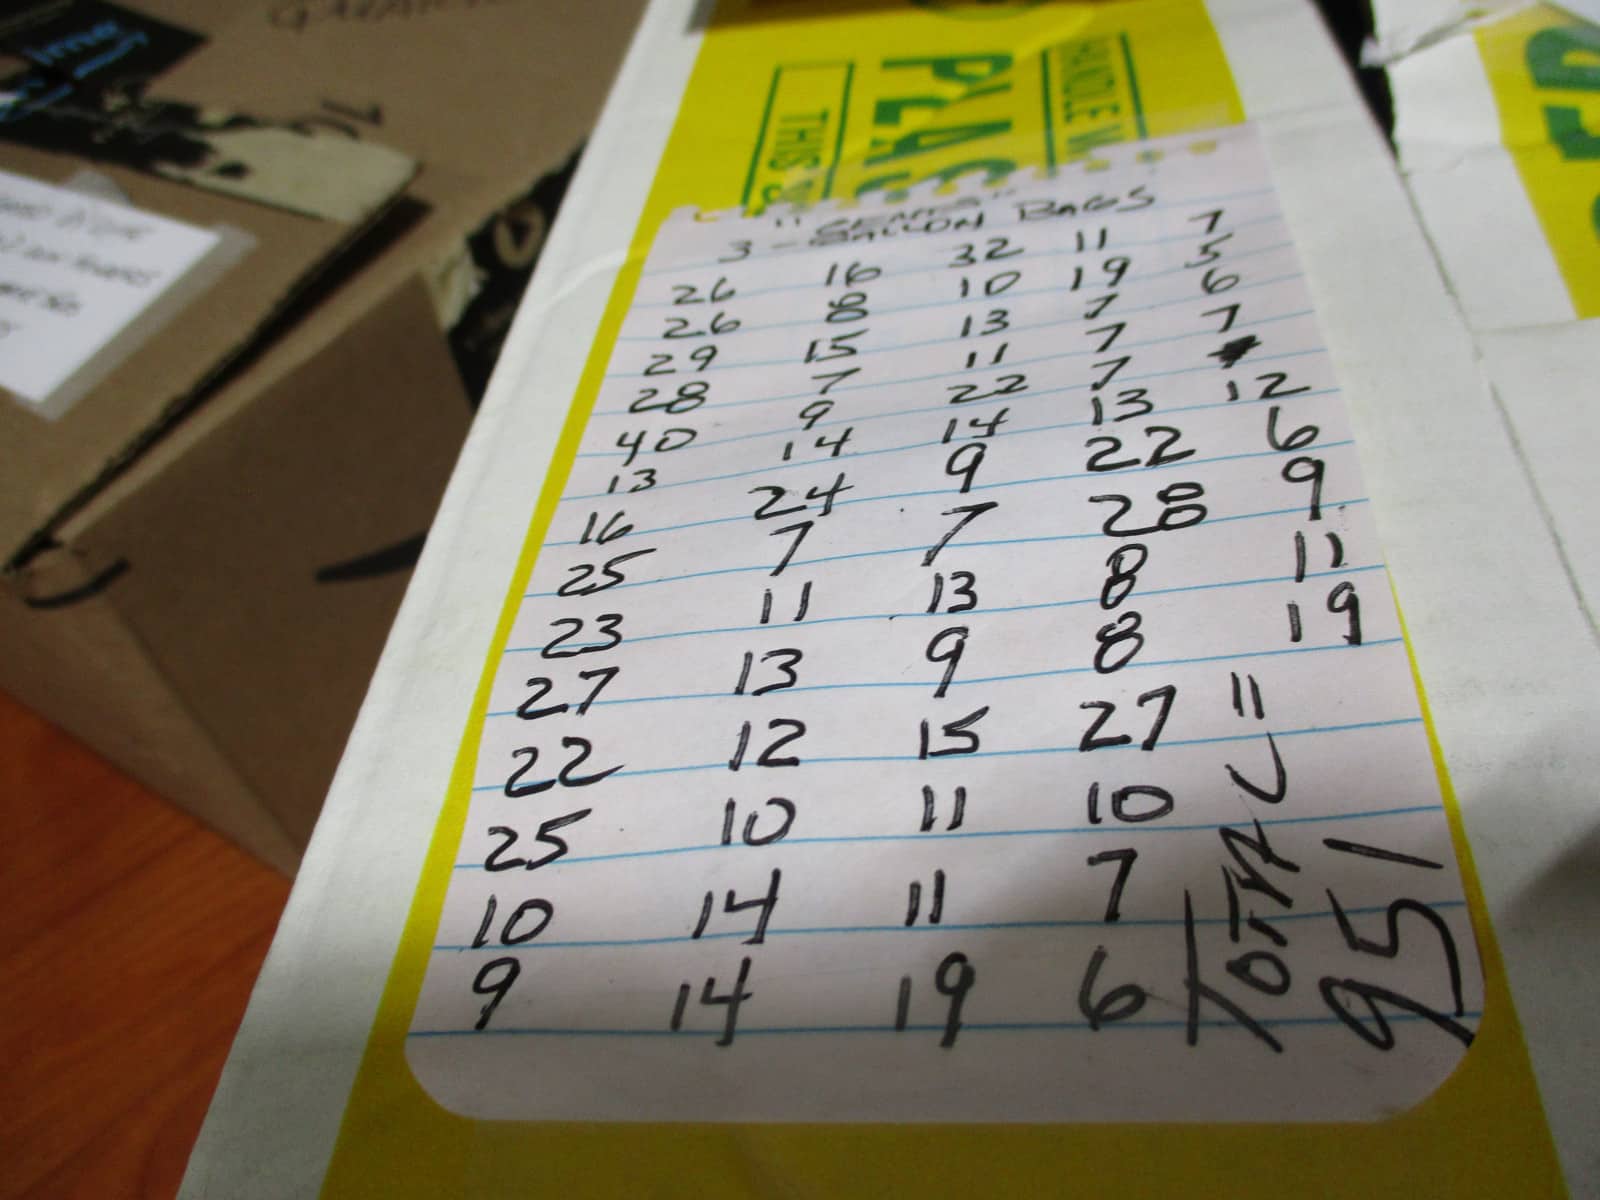 HANDLE
THIS
3-GALLON BAGS
26 16 32 11 7
26 8 10 19 5
29 15 13 7 6
28 7 11 7 7
40 9 22 7
13 14 14 13 12
16 24 9 22 6
25 7 7 28 9
23 11 13 8 11
27 13 9 8 19
22 12 15 27
25 10 11 10
10 14 11 7
9 14 19 6
TOTAL =
951